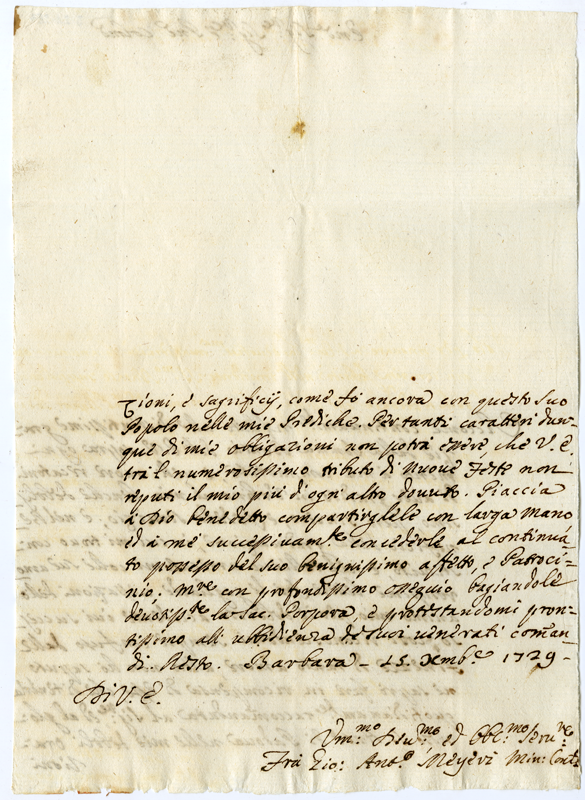 zioni, e sagrificij, come fo ancora con questo suo
Popolo nelle mie Prediche. Per tanti caratteri dun-
que di mie obligazioni non potrà essere, che V. E.
tra'l numerosissimo tributo di nuove Feste non
reputi il mio più d'ogni altro dovuto. Piaccia
à Dio benedetto compartirglele con larga mano
ed à me successivam.te concederle al continuà-
to possesso del suo benignissimo affetto, e Patroci-
nio: m.re con profondissimo ossequio bagiandole
devotiss.te la Sac. Porpora, e protestandomi pron-
tissimo all' ubbidienza de suoi venerati coman-
di. Resto. Barbara - 15. Xmb.e 1729 -
Di V. E.
Um.mo Dev.mo, ed Obb.mo Serv.re
Fra Gio: Ant.o Meyeri Min: Cont.e